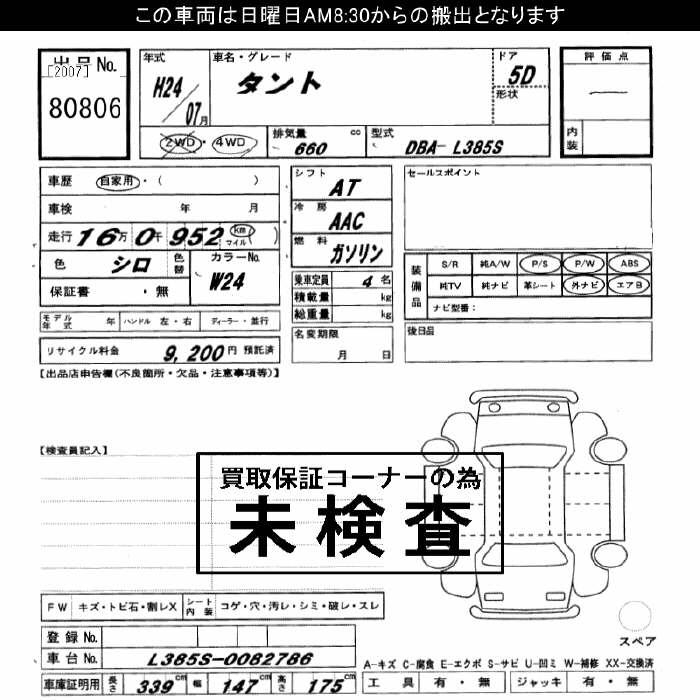 この車両は日曜日AM8:30からの搬出となります
出品No.
[2007]
80806
年式 H24/07月
車名・グレード タント
ドア 5D
形状
評価点
内装
2WD・4WD
排気量 660 cc
型式 DBA- L385S
車歴 自家用・( )
車検 年 月
走行 16万0千952 km マイル( )
色 シロ 色替 カラーNo. W24
保証書 ・無
シフト AT
冷房 AAC
燃料 ガソリン
乗車定員 4 名
積載量 kg
総重量 kg
セールスポイント
装備品 S/R 純A/W P/S P/W ABS
純TV 純ナビ 革シート 外ナビ エアB
ナビ型番:
モデル年式 年 ハンドル 左・右 ディーラー・並行
名変期限 月 日
後日品
リサイクル料金 9,200円 預託済
【出品店申告欄(不良箇所・欠品・注意事項等)】
【検査員記入】
買取保証コーナーの為
未検査
FW キズ・トビ石・割レX シート内装 コゲ・穴・汚レ・シミ・破レ・スレ
スペア
登録No.
車台No. L385S-0082786
車庫証明用 長さ 339 cm 幅 147 cm 高さ 175 cm
A-キズ C-腐食 E-エクボ S-サビ U-凹ミ W-補修 XX-交換済
工具 有・無 ジャッキ 有・無